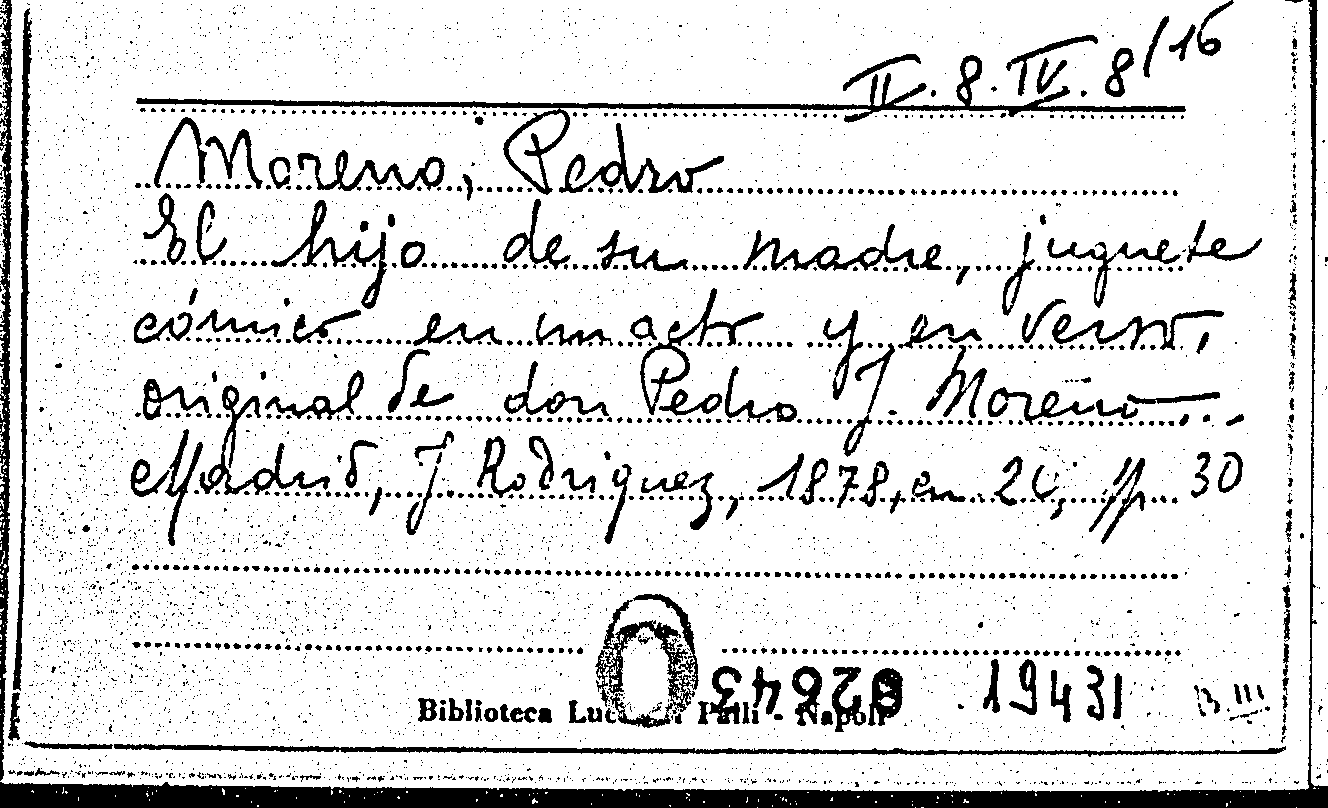 II. 8. IV. 8/16
Moreno, Pedro
El hijo de su madre, juguete
cómico en un acto y en verso,
original de don Pedro J. Moreno...
Madrid, J. Rodriguez, 1878, en 2°, pp. 30
02643 19431 B. III
Biblioteca Palli - Napoli